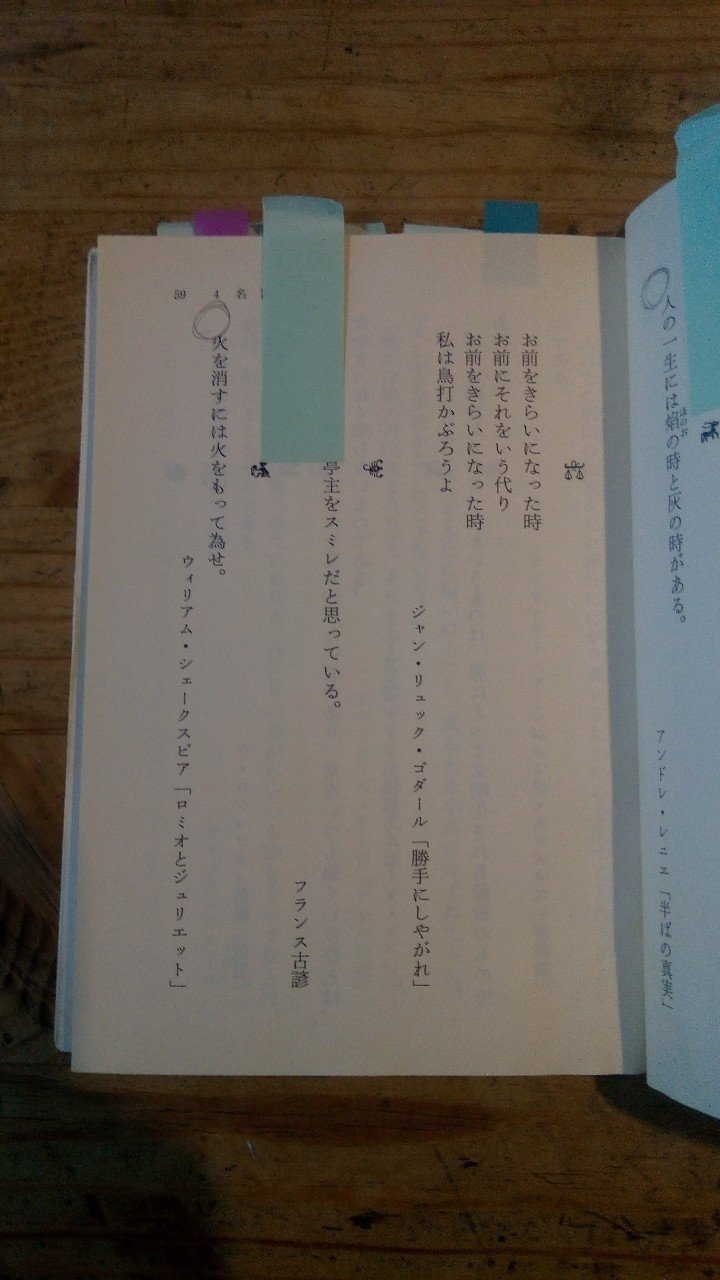 人の一生には焰の時と灰の時がある。
ほのお
アンドレ・レニエ「半ばの真実」
お前をきらいになった時
お前にそれをいう代り
お前をきらいになった時
私は鳥打かぶろうよ
ジャン・リュック・ゴダール「勝手にしやがれ」
亭主をスミレだと思っている。
フランス古諺
火を消すには火をもって為せ。
ウィリアム・シェークスピア「ロミオとジュリエット」
59 4 名